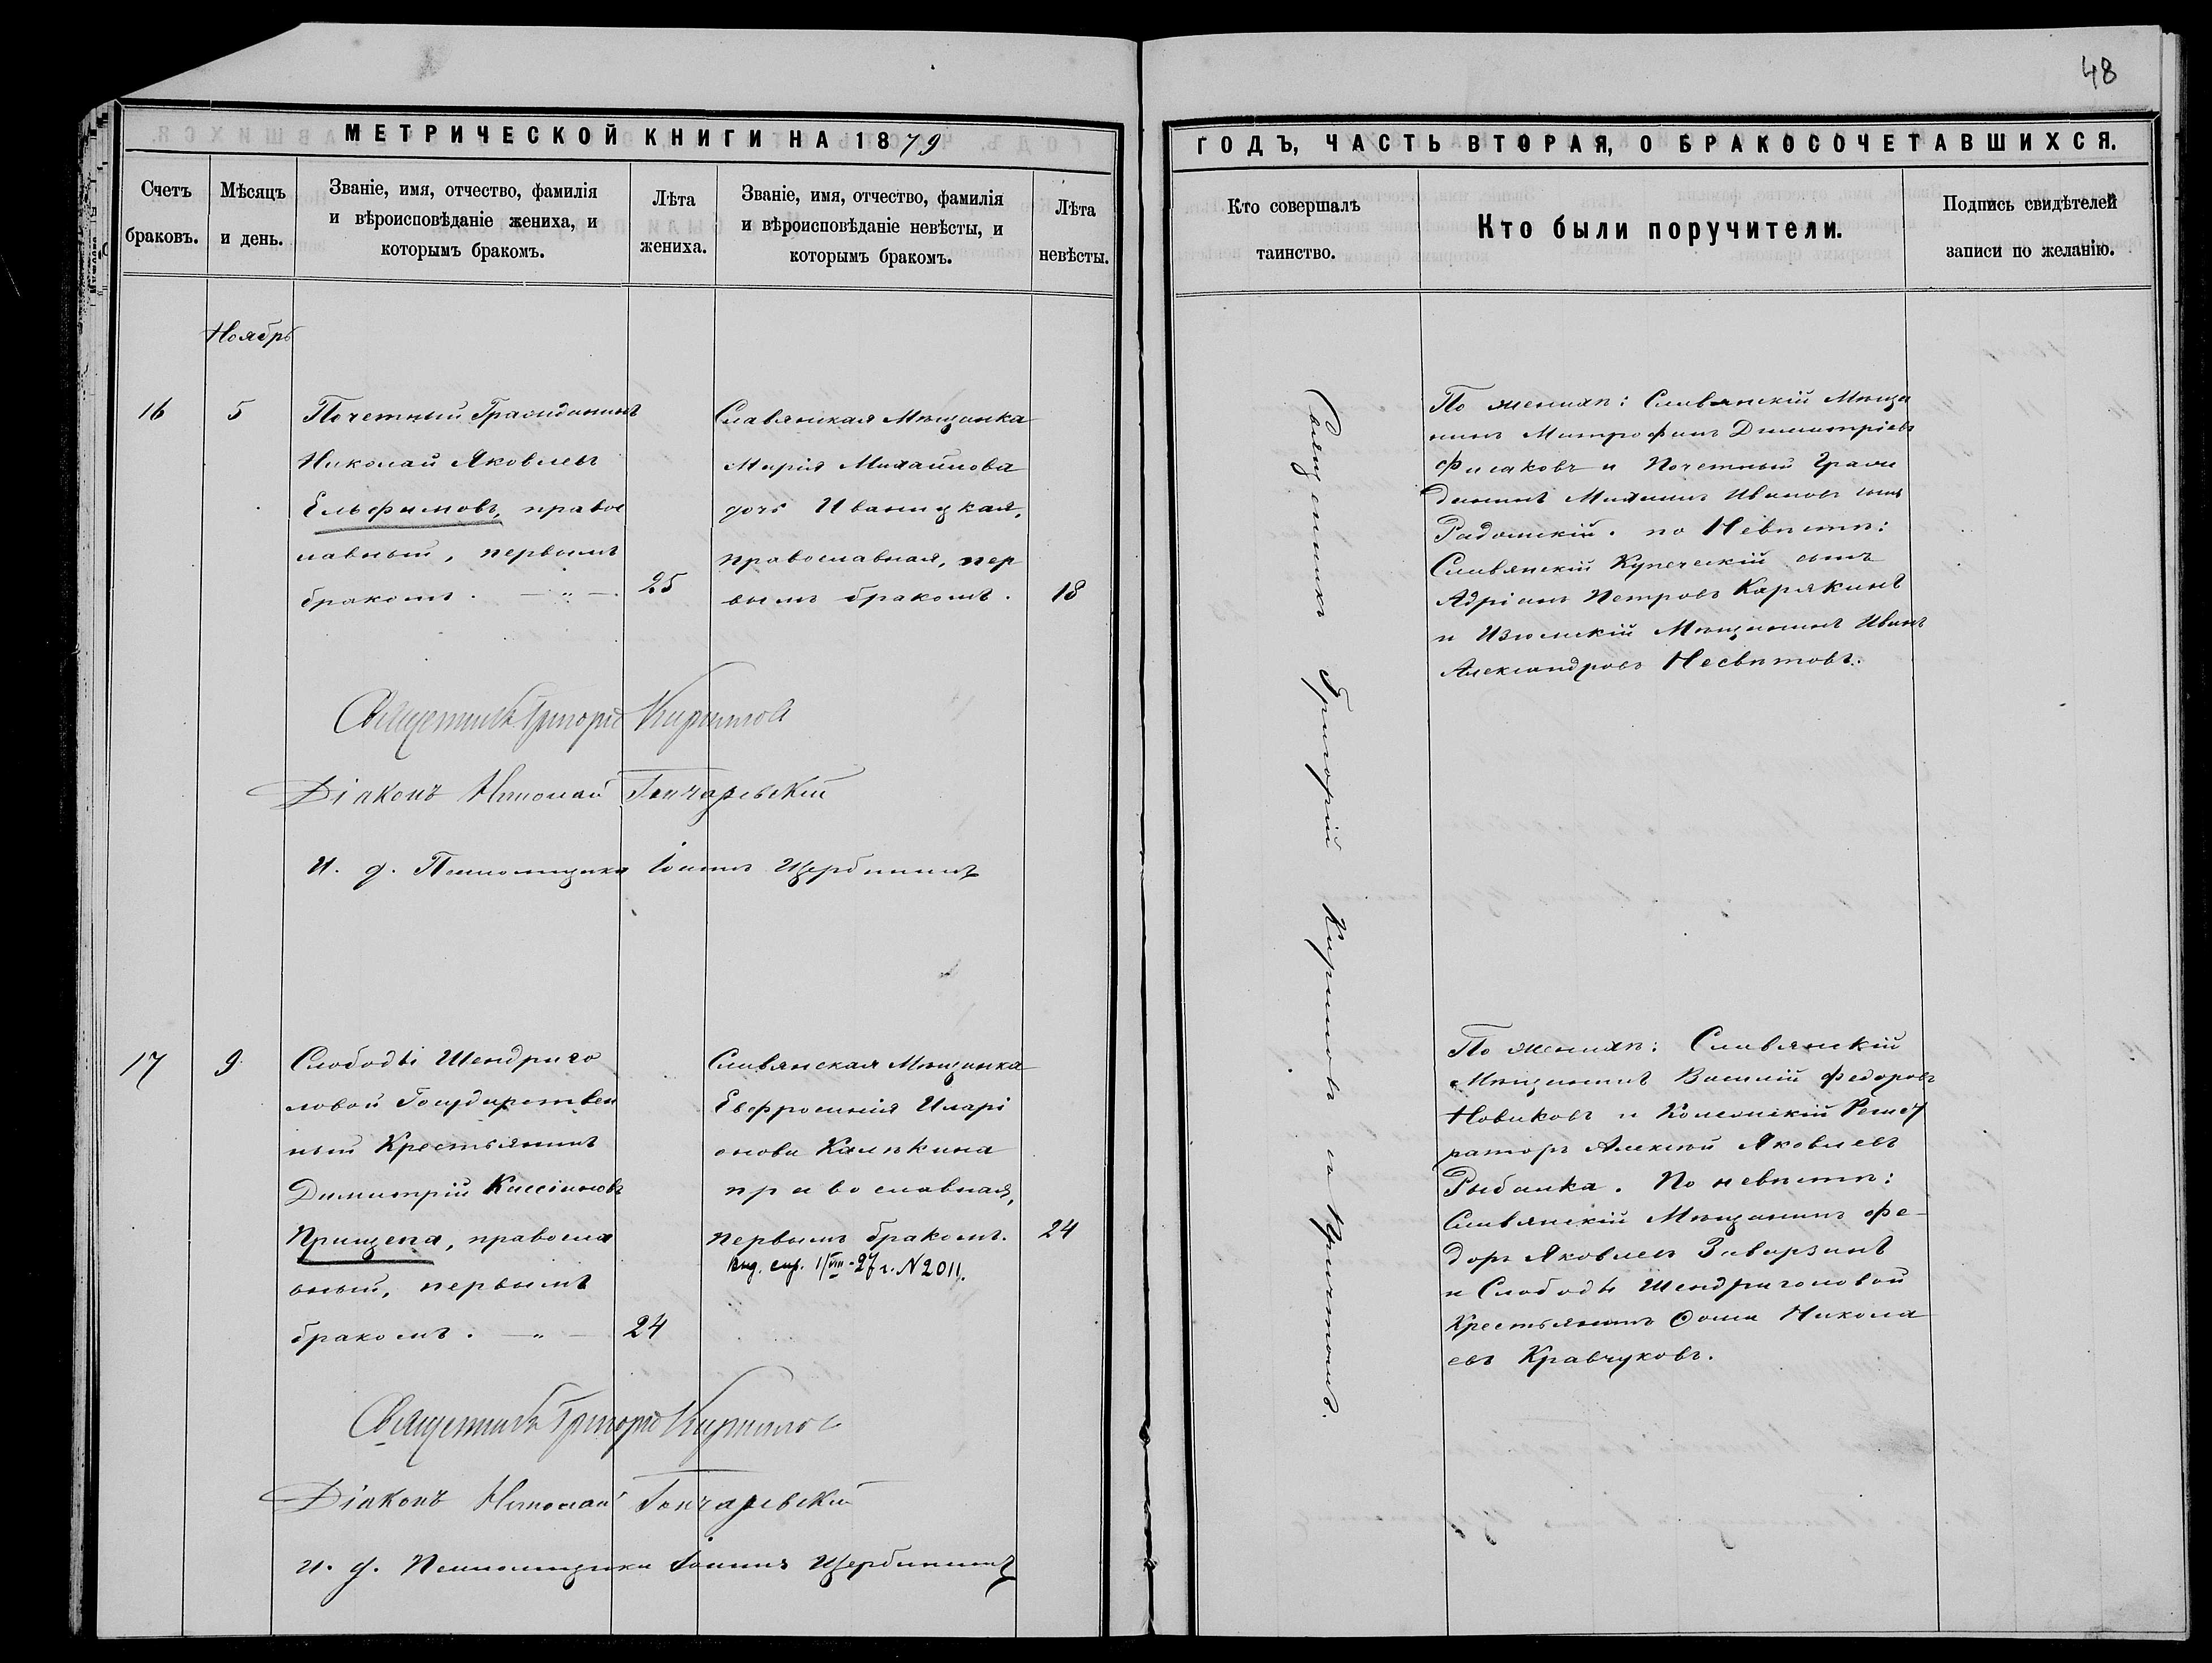 48
МЕТРИЧЕСКОЙ КНИГИ НА 1879
Счетъ браковъ.
Мѣсяцъ и день.
Званіе, имя, отчество, фамилія
и вѣроисповѣданіе жениха, и
которымъ бракомъ.
Лѣта
жениха.
Званіе, имя, отчество, фамилія
и вѣроисповѣданіе невѣсты, и
которымъ бракомъ.
Лѣта
невѣсты.
Ноябрь
16
5
Почетный Гражданинъ
Николай Яковлевъ
Ельфимовъ, правос
лавный, первымъ
бракомъ. — „ —
25
Славянская Мѣщанка
Марія Михайлова
дочь Иваницкая,
православная, пер
вымъ бракомъ.
18
Священникъ Григорій Кириловъ
Діаконъ Николай Гончаревскій
И. д. Псаломщика Іоаннъ Щербининъ
17
9
Слободы Шендриго
ловой Государствен
ный Крестьянинъ
Димитрій Кассіановъ
Прищепа, правосла
вный, первымъ
бракомъ. — „ —
24
Славянская Мѣщанка
Евфросинія Иларі
онова Калѣкина
православная,
первымъ бракомъ.
24
Выд. спр. 1/VIII-27 г. N 2011.
Священникъ Григорій Кириловъ
Діаконъ Николай Гончаревскій
и. д. Псаломщика Іоаннъ Щербининъ
ГОДЪ, ЧАСТЬ ВТОРАЯ, О БРАКОСОЧЕТАВШИХСЯ.
Кто совершалъ
таинство.
Кто были поручители.
Подпись свидѣтелей
записи по желанію.
Священникъ Григорій Кириловъ и Причтомъ.
По женихѣ: Славянскій Мѣща
нинъ Митрофанъ Димитріевъ
Фисаковъ и Почетный Граж
данинъ Михаилъ Ивановъ сынъ
Радомскій. по Невѣстѣ:
Славянскій Купеческій сынъ
Адріанъ Петровъ Карякинъ
и Изюмскій Мѣщанинъ Иванъ
Александровъ Несвѣтовъ.
По женихѣ: Славянскій
Мѣщанинъ Василій Федоровъ
Новиковъ и Колежскій Регист
раторъ Алексѣй Яковлевъ
Рыбалка. По невѣстѣ:
Славянскій Мѣщанинъ Фе-
доръ Яковлевъ Заварзинъ
и Слободы Шендриголовой
Крестьянинъ Ѳома Никола
евъ Кравчуковъ.